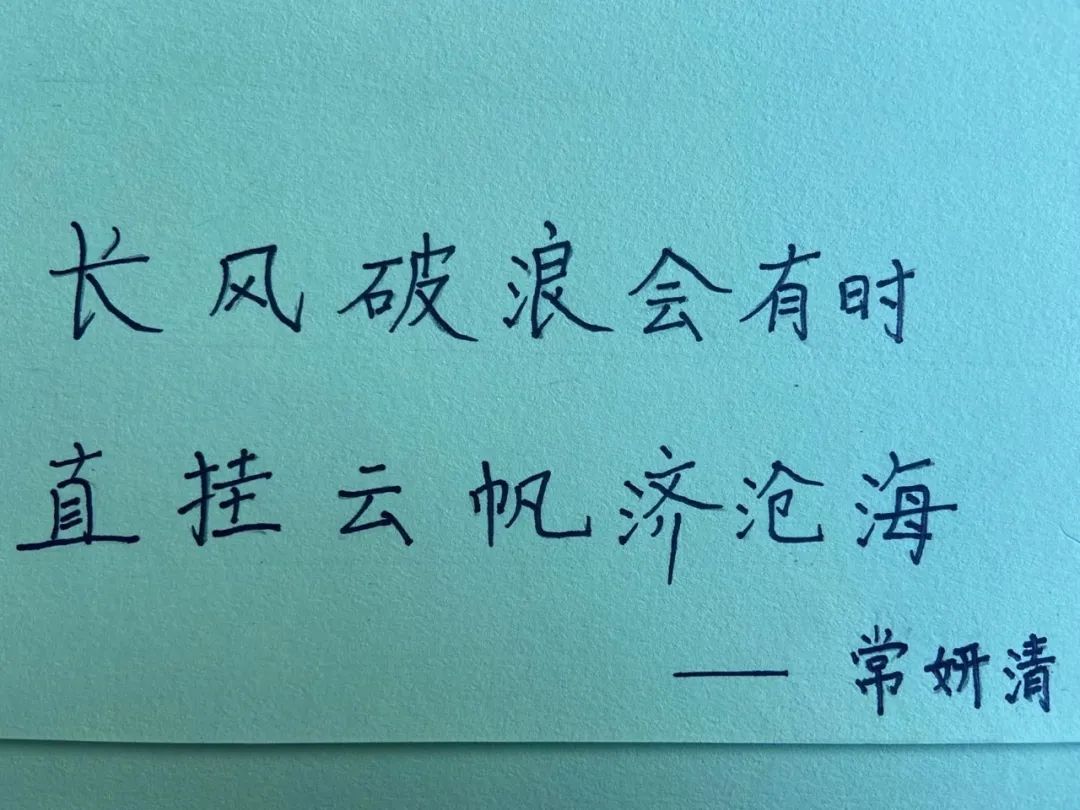 长风破浪会有时
直挂云帆济沧海
——常妍清